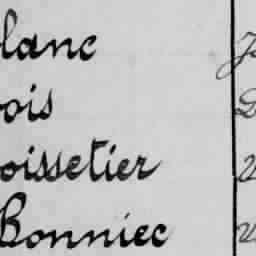 lanc
ois
oissetier
Bonniec